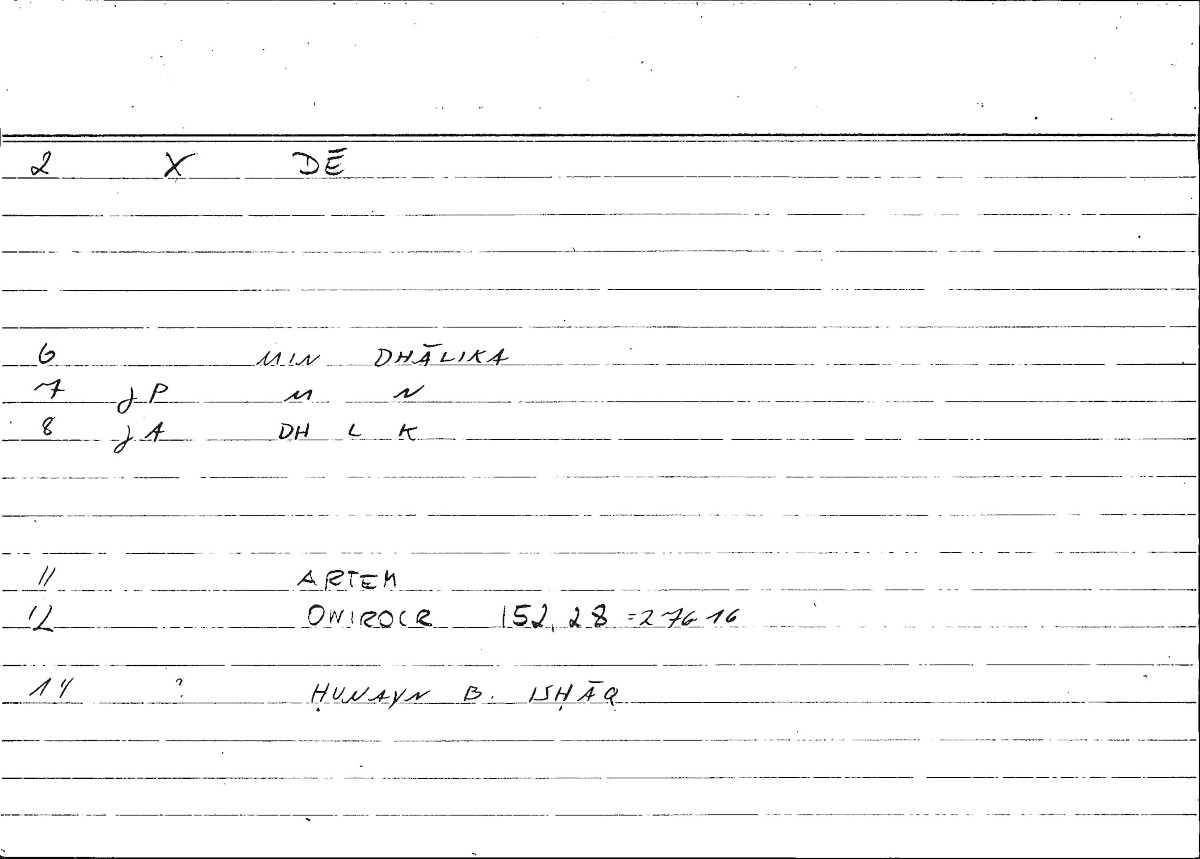 2 X DĒ
6 MIN DHĀLIKA
7 JP M N
8 JA DH L K
11 ARTEM
12 ONIROCR 152,28 =276 16
14 ? ḤUNAYN B. ISḤĀQ